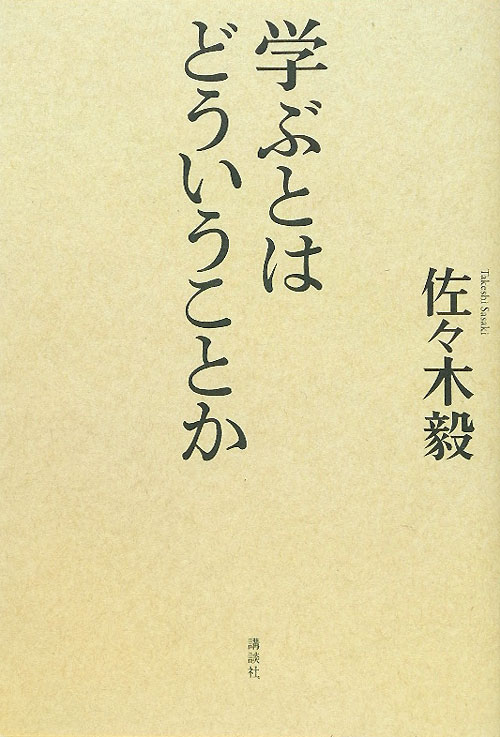 学ぶとは
どういうことか
佐々木毅
Takeshi Sasaki
講談社